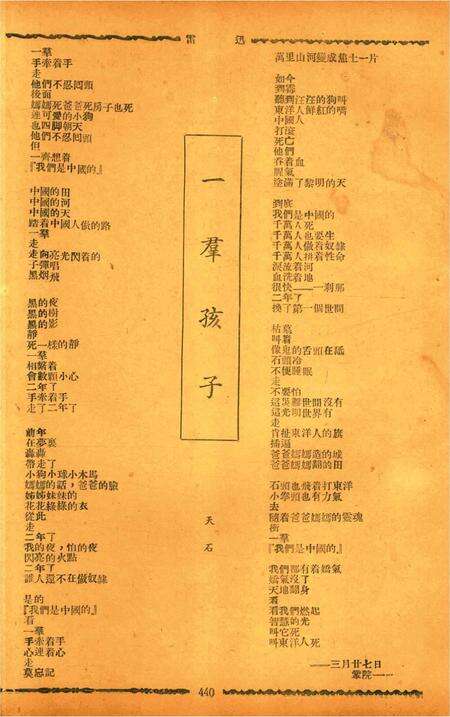 雷 迅
一羣孩子
天石
一羣
手牽着手
走
他們不忍囘頭
後面
媽媽死爸爸死房子也死
連可愛的小狗
也四脚朝天
他們不忍囘頭
但
一齊想着
『我們是中國的』
中國的田
中國的河
中國的天
踏着中國人做的路
一羣
走
走向亮光閃着的
子彈唱
黑烟飛
黑的夜
黑的樹
黑的影
靜
死一樣的靜
一羣
相繫着
會數顆小心
二年了
手牽着手
走了二年了
前年
在夢裏
轟轟
帶走了
小狗小球小木馬
媽媽的話，爸爸的臉
姊姊妹妹的
花花綠綠的衣
從此
走
二年了
我的夜，怕的夜
閃亮的火點
二年了
誰人還不在做奴隸
是的
『我們是中國的』
看
一羣
手牽着手
心連着心
走
莫忘記
萬里山河變成焦土一片
如今
聽到汪汪的狗叫
東洋人鮮紅的嘴
中國人
打滾
死亡
他們
吞着血
腥氣
塗滿了黎明的天
到底
我們是中國的
千萬人死
千萬人也要生
千萬人做着奴隸
千萬人拚着性命
淚流着河
血洗着地
很快——一刹那
二年了
換了第一個世間
枯墓
叫着
像鬼的舌頭在舐
石頭冷
不便睡眠
走
不要怕
這災難世間沒有
這光明世界有
走
肯扯東洋人的旗
插遍
爸爸媽媽造的城
爸爸媽媽翻的田
石頭也飛着打東洋
小拳頭也有力氣
去
隨着爸爸媽媽的靈魂
衝
一羣
『我們是中國的』
我們都有着嬌氣
嬌氣沒了
天地翻身
看
看我們燃起
智慧的光
叫它死
叫東洋人死
——三月廿七日
440